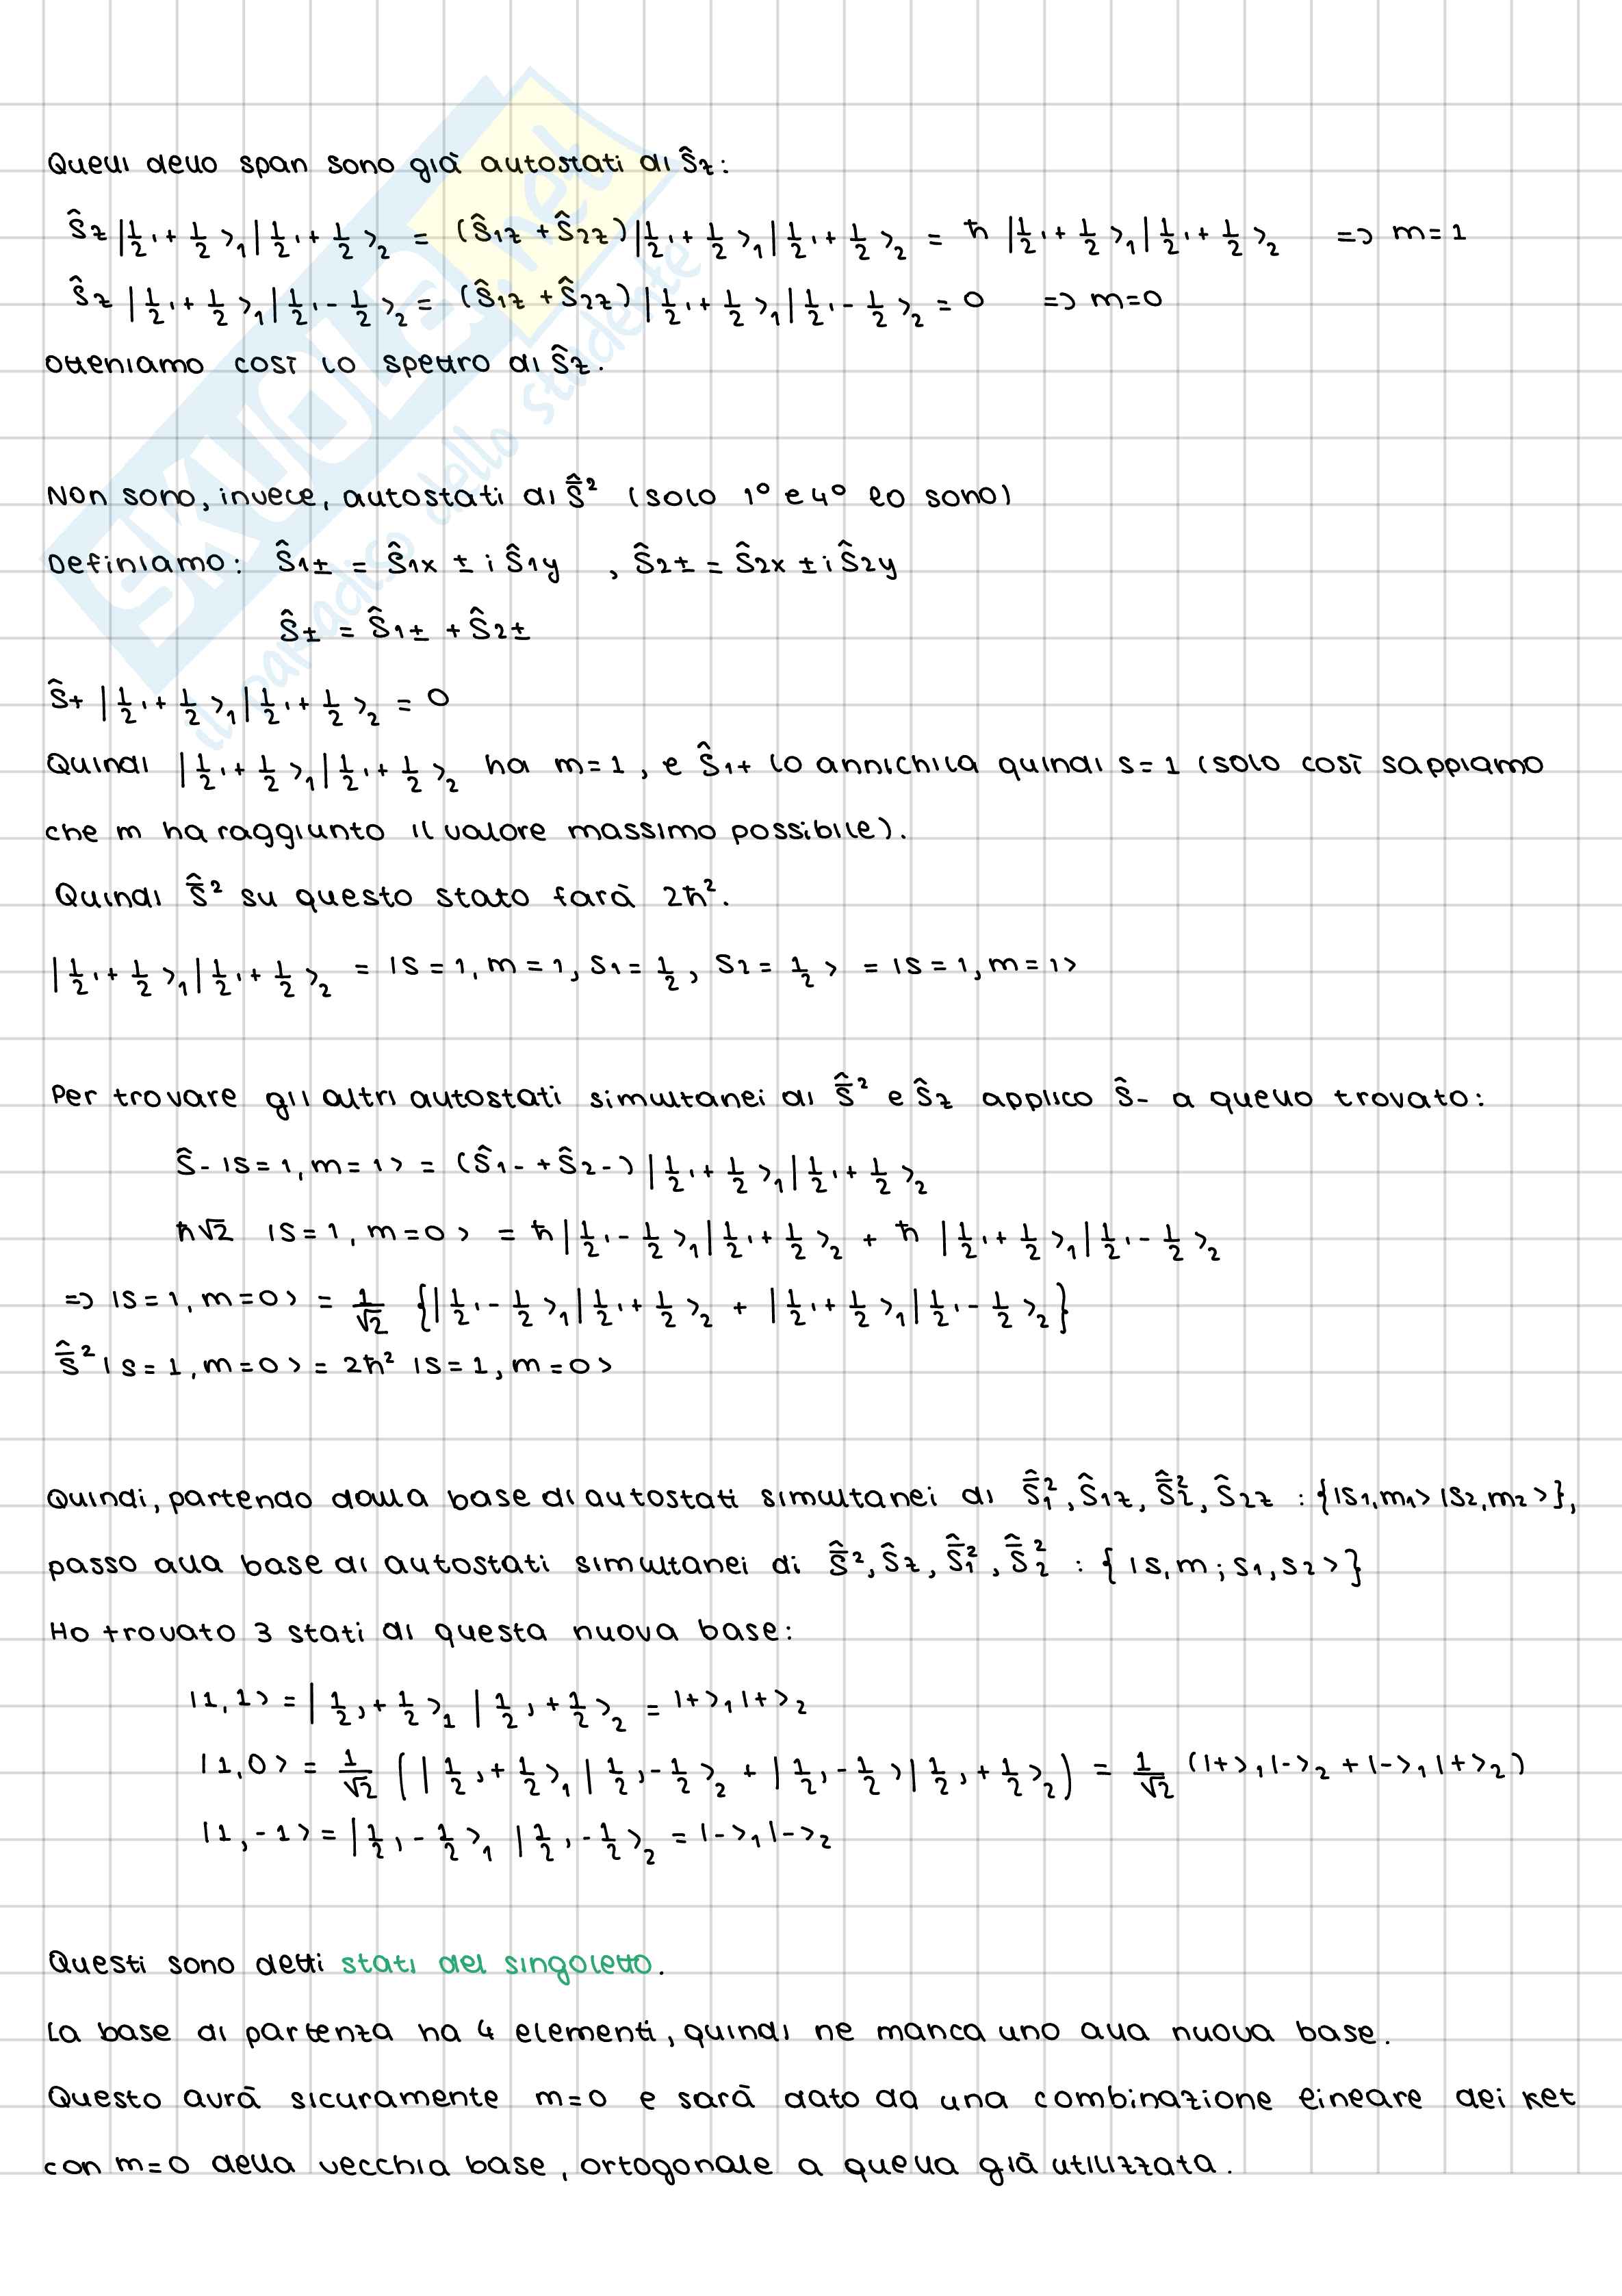 Quelli dello span sono già autostati di Ŝz:
Ŝz |½,+½>₁|½,+½>₂ = (Ŝ1z + Ŝ2z)|½,+½>₁|½,+½>₂ = ħ |½,+½>₁|½,+½>₂ => m=1
Ŝz |½,+½>₁|½,-½>₂ = (Ŝ1z + Ŝ2z)|½,+½>₁|½,-½>₂ = 0 => m=0
Otteniamo così lo spettro di Ŝz.
Non sono, invece, autostati di Ŝ̄² (solo 1° e 4° lo sono)
Definiamo: Ŝ1± = Ŝ1x ± i Ŝ1y , Ŝ2± = Ŝ2x ± i Ŝ2y
Ŝ± = Ŝ1± + Ŝ2±
Ŝ+ |½,+½>₁|½,+½>₂ = 0
Quindi |½,+½>₁|½,+½>₂ ha m=1, e Ŝ1+ lo annichila quindi s=1 (solo così sappiamo
che m ha raggiunto il valore massimo possibile).
Quindi Ŝ̄² su questo stato farà 2ħ².
|½,+½>₁|½,+½>₂ = |S=1, m=1, S1=½, S2=½> = |S=1, m=1>
Per trovare gli altri autostati simultanei di Ŝ̄² e Ŝz applico Ŝ- a quello trovato:
Ŝ- |S=1, m=1> = (Ŝ1- + Ŝ2-)|½,+½>₁|½,+½>₂
ħ√2 |S=1, m=0> = ħ|½,-½>₁|½,+½>₂ + ħ |½,+½>₁|½,-½>₂
=> |S=1, m=0> = 1/√2 {|½,-½>₁|½,+½>₂ + |½,+½>₁|½,-½>₂}
Ŝ̄² |S=1, m=0> = 2ħ² |S=1, m=0>
Quindi, partendo dalla base di autostati simultanei di Ŝ̄1², Ŝ1z, Ŝ̄2², Ŝ2z : {|S1,m1>|S2,m2>},
passo alla base di autostati simultanei di Ŝ̄², Ŝz, Ŝ̄1², Ŝ̄2² : {|S,m; S1,S2>}
Ho trovato 3 stati di questa nuova base:
|1,1> = |½,+½>₁ |½,+½>₂ = |+>₁|+>₂
|1,0> = 1/√2 (|½,+½>₁|½,-½>₂ + |½,-½>|½,+½>₂) = 1/√2 (|+>₁|->₂ + |->₁|+>₂)
|1,-1> = |½,-½>₁ |½,-½>₂ = |->₁|->₂
Questi sono detti stati del singoletto.
La base di partenza ha 4 elementi, quindi ne manca uno alla nuova base.
Questo avrà sicuramente m=0 e sarà dato da una combinazione lineare dei ket
con m=0 della vecchia base, ortogonale a quella già utilizzata.
SKUOLA.net
il paradiso dello studente